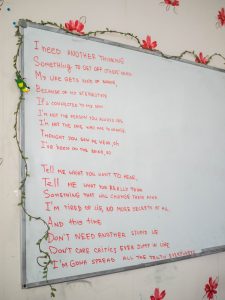 I NEED ANOTHER THINKING
SOMETHING TO GET OFF OTHER MIND
MY LIFE GETS KIND OF BORING,
BECAUSE OF MY
IT'S CONNECTED TO MY
I'M NOT THE PERSON YOU
I'M NOT THE ONE WHO
THOUGHT YOU SAW ME
I'VE BEEN ON THE
TELL ME WHAT YOU WANT TO HEAR,
TELL ME WHAT YOU REALLY THINK
SOMETHING THAT WILL CHANGE THEIR MIND
I'M TIRED OF LIE, NO MORE SECRETS AT ALL
AND THIS TIME
DON'T NEED ANOTHER STUPID LIE
DON'T CARE CRITICS EVER JUMP IN LINE
I'M GONNA SPREAD ALL THE TRUTH